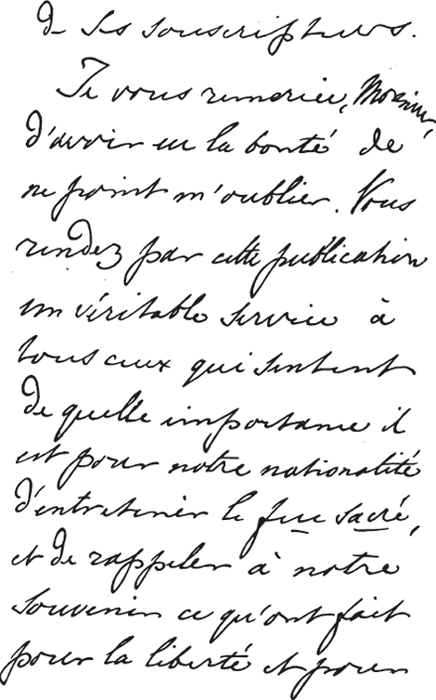 de ses souscripteurs.
Je vous remercie, Monsieur,
d'avoir eu la bonté de
ne point m'oublier. Vous
rendez par cette publication
un véritable service à
tous ceux qui sentent
de quelle importance il
est pour notre nationalité
d'entretenir le feu sacré,
et de rappeler à notre
souvenir ce qu'ont fait
pour la liberté et pour